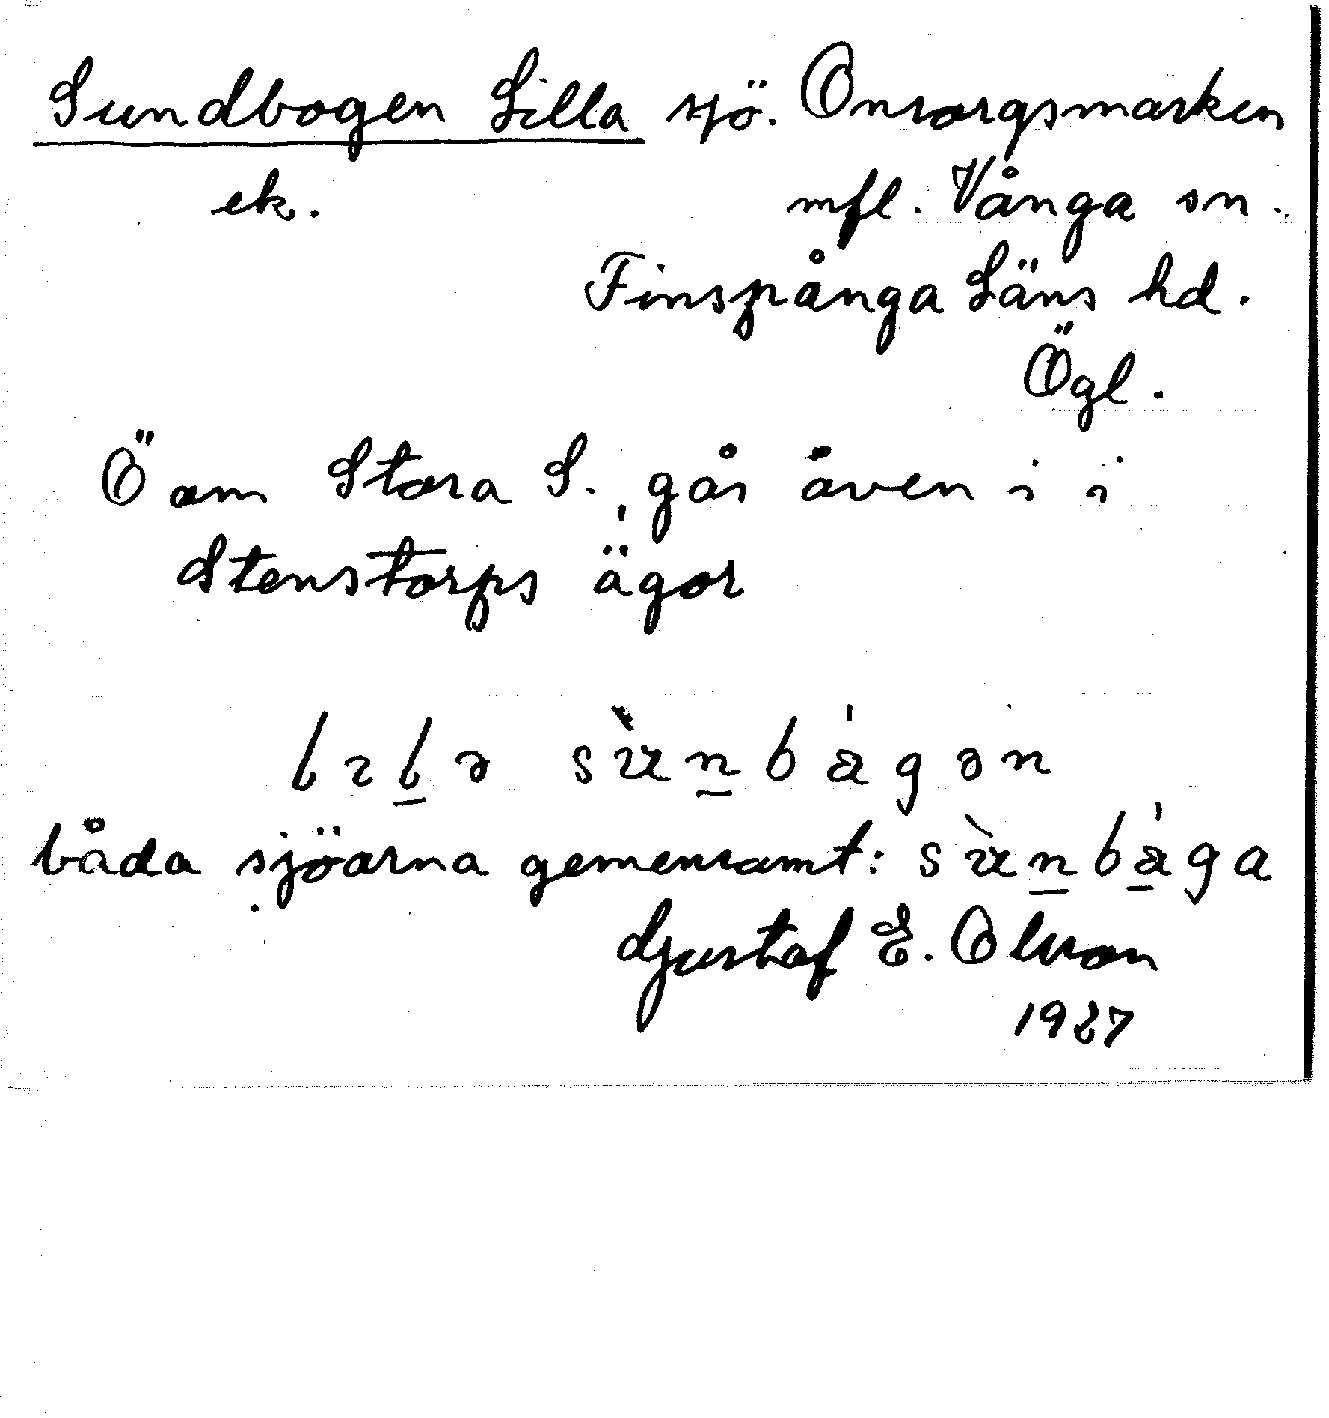 Sundbogen Lilla sjö. Onsorgsmarken
ek. mfl. Vånga sn.
Finspånga Läns hd.
Ögl.
Ö om Stora S., går även i i
Stenstorps ägor
båda sjöarna gemensamt:
Gustaf E. Olsson
1927